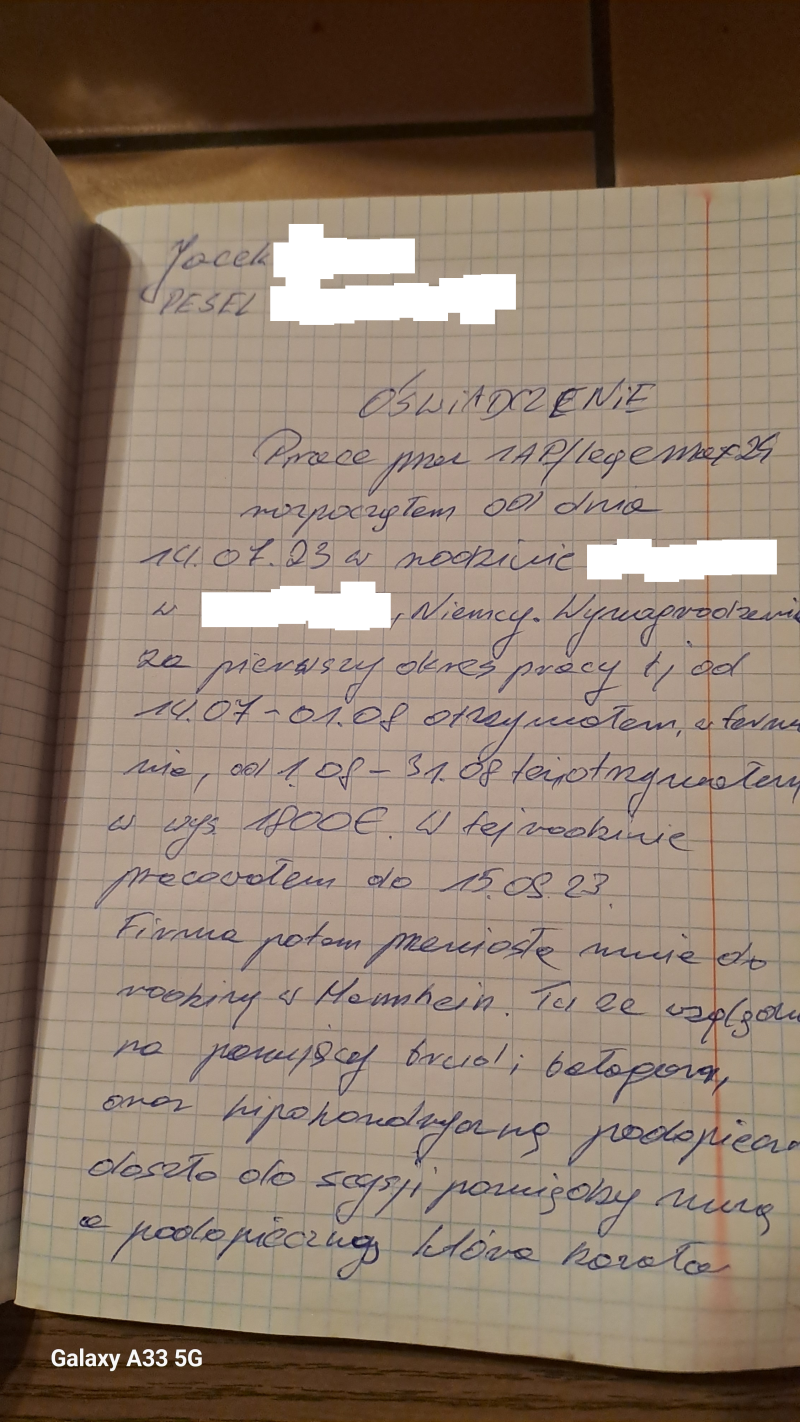 Jacek
PESEL
OŚWIADCZENIE
Prace przez 1AP/
rozpocząłem od dnia
14.07.23 w rodzinie
w , Niemcy. Wynagrodzenie
za pierwszy okres pracy tj od
14.07-01.08 otrzymałem, w termi
nie, od 1.08-31.08 też otrzymałem
w wys 1800€. W tej rodzinie
pracowałem do 15.09.23.
Firma potem przeniosła mnie do
rodziny w Mannhein. Tu ze względu
na panujący brud i bałagan,
oraz hipohondryczną podopieczn
doszło do scysji pomiędzy mną
a podopieczną która kazała
Galaxy A33 5G